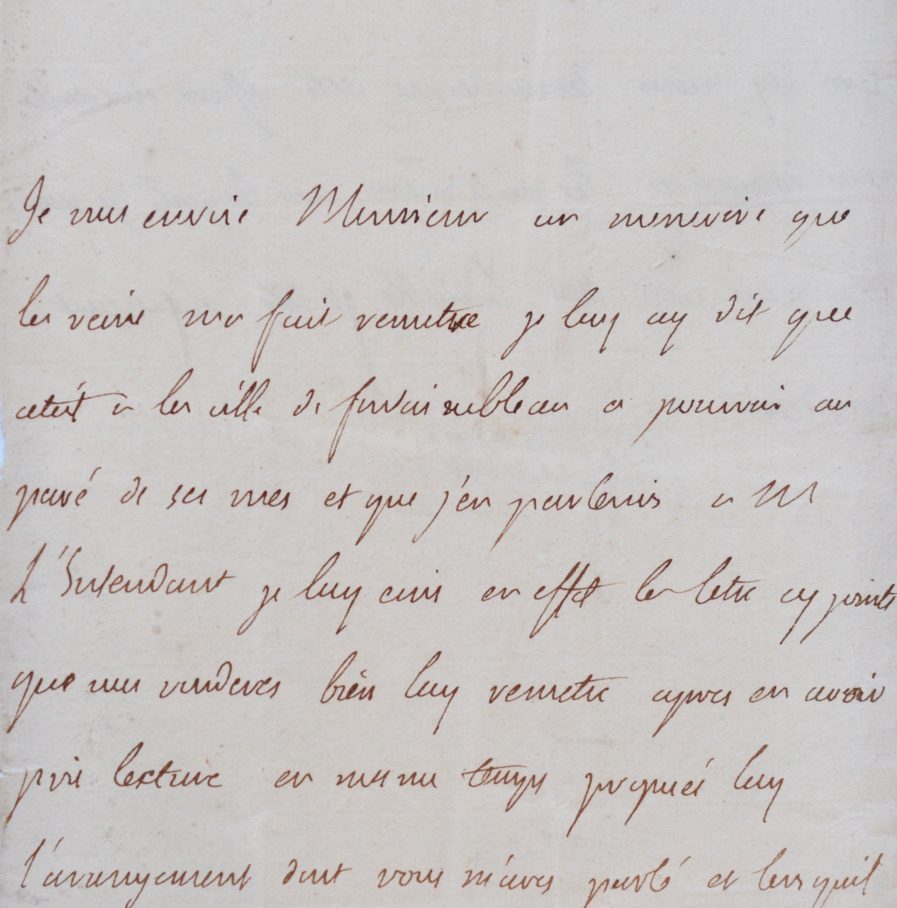 Je vous envoie Monsieur un memoire que
la reine ma fait remettre je luy ay dit que
cetoit a la ville de fontainebleau a pourvoir au
pavé de ses rues et que j'en parlerois a M
L'Intendant je luy ecris en effet la lettre cy jointe
que vous voudres bien luy remettre apres en avoir
pris lecture en meme temps proposés luy
l'arrangement dont vous m'aves parlé et lorsquil